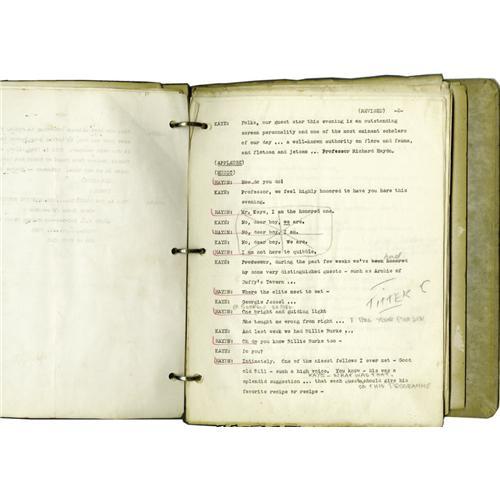 (REVISED) -2-
KAYE: Folks, our guest star this evening is an outstanding
screen personality and one of the most eminent scholars
of our day ... a well-known authority on flora and fauna,
and flotsam and jetsam ... Professor Richard Haydn.
(APPLAUSE)
HAYDN: How do you do!
KAYE: Professor, we feel highly honored to have you here this
evening.
HAYDN: Mr. Kaye, I am the honored one.
KAYE: No, dear boy, we are.
HAYDN: No, dear boy, I am.
KAYE: No, dear boy. We are.
HAYDN: I am not here to quibble.
had
KAYE: Professor, during the past few weeks we've been honored
by some very distinguished guests - such as Archie of
Duffy's Tavern ...
HAYDN: Where the elite meet to eat -
TITTER
KAYE: Georgie Jessel ...
HAYDN: One bright and guiding light
She taught me wrong from right ...
KAYE: And last week we had Billie Burke ...
HAYDN: Oh do you know Billie Burke too -
KAYE: Do you?
HAYDN: Intimately. One of the nicest fellows I ever met - Good
old Bill - such a high voice. You know - his was a
KAYE - WHAT WAS THAT
splendid suggestion ... that each guest should give his
ON THIS PROGRAMME
favorite recipe or recipe -